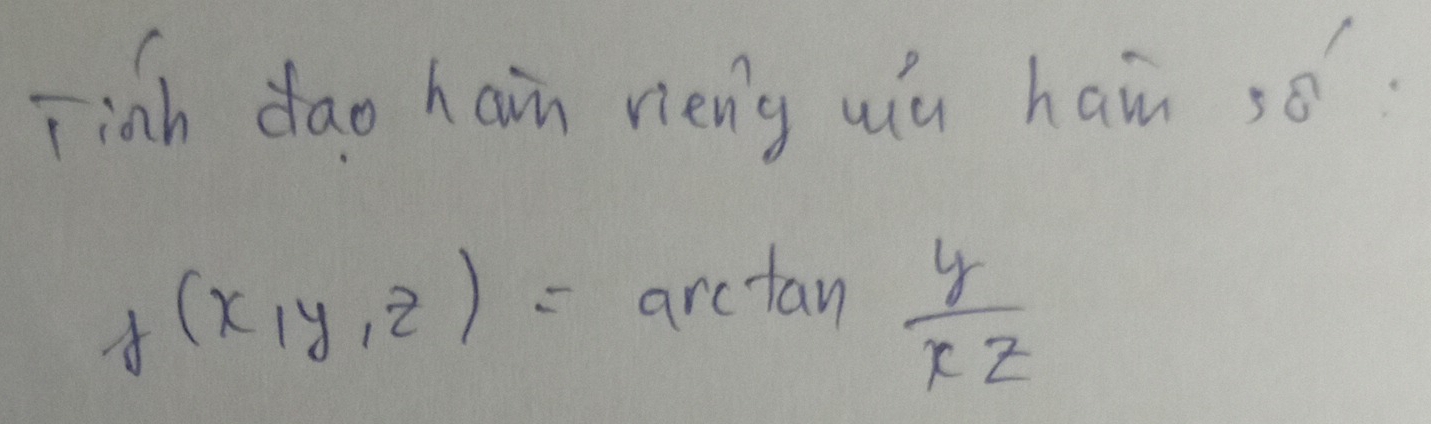 Tính đạo hàm riêng của hàm số:
f(x,y,z) = arctan \frac{y}{xz}